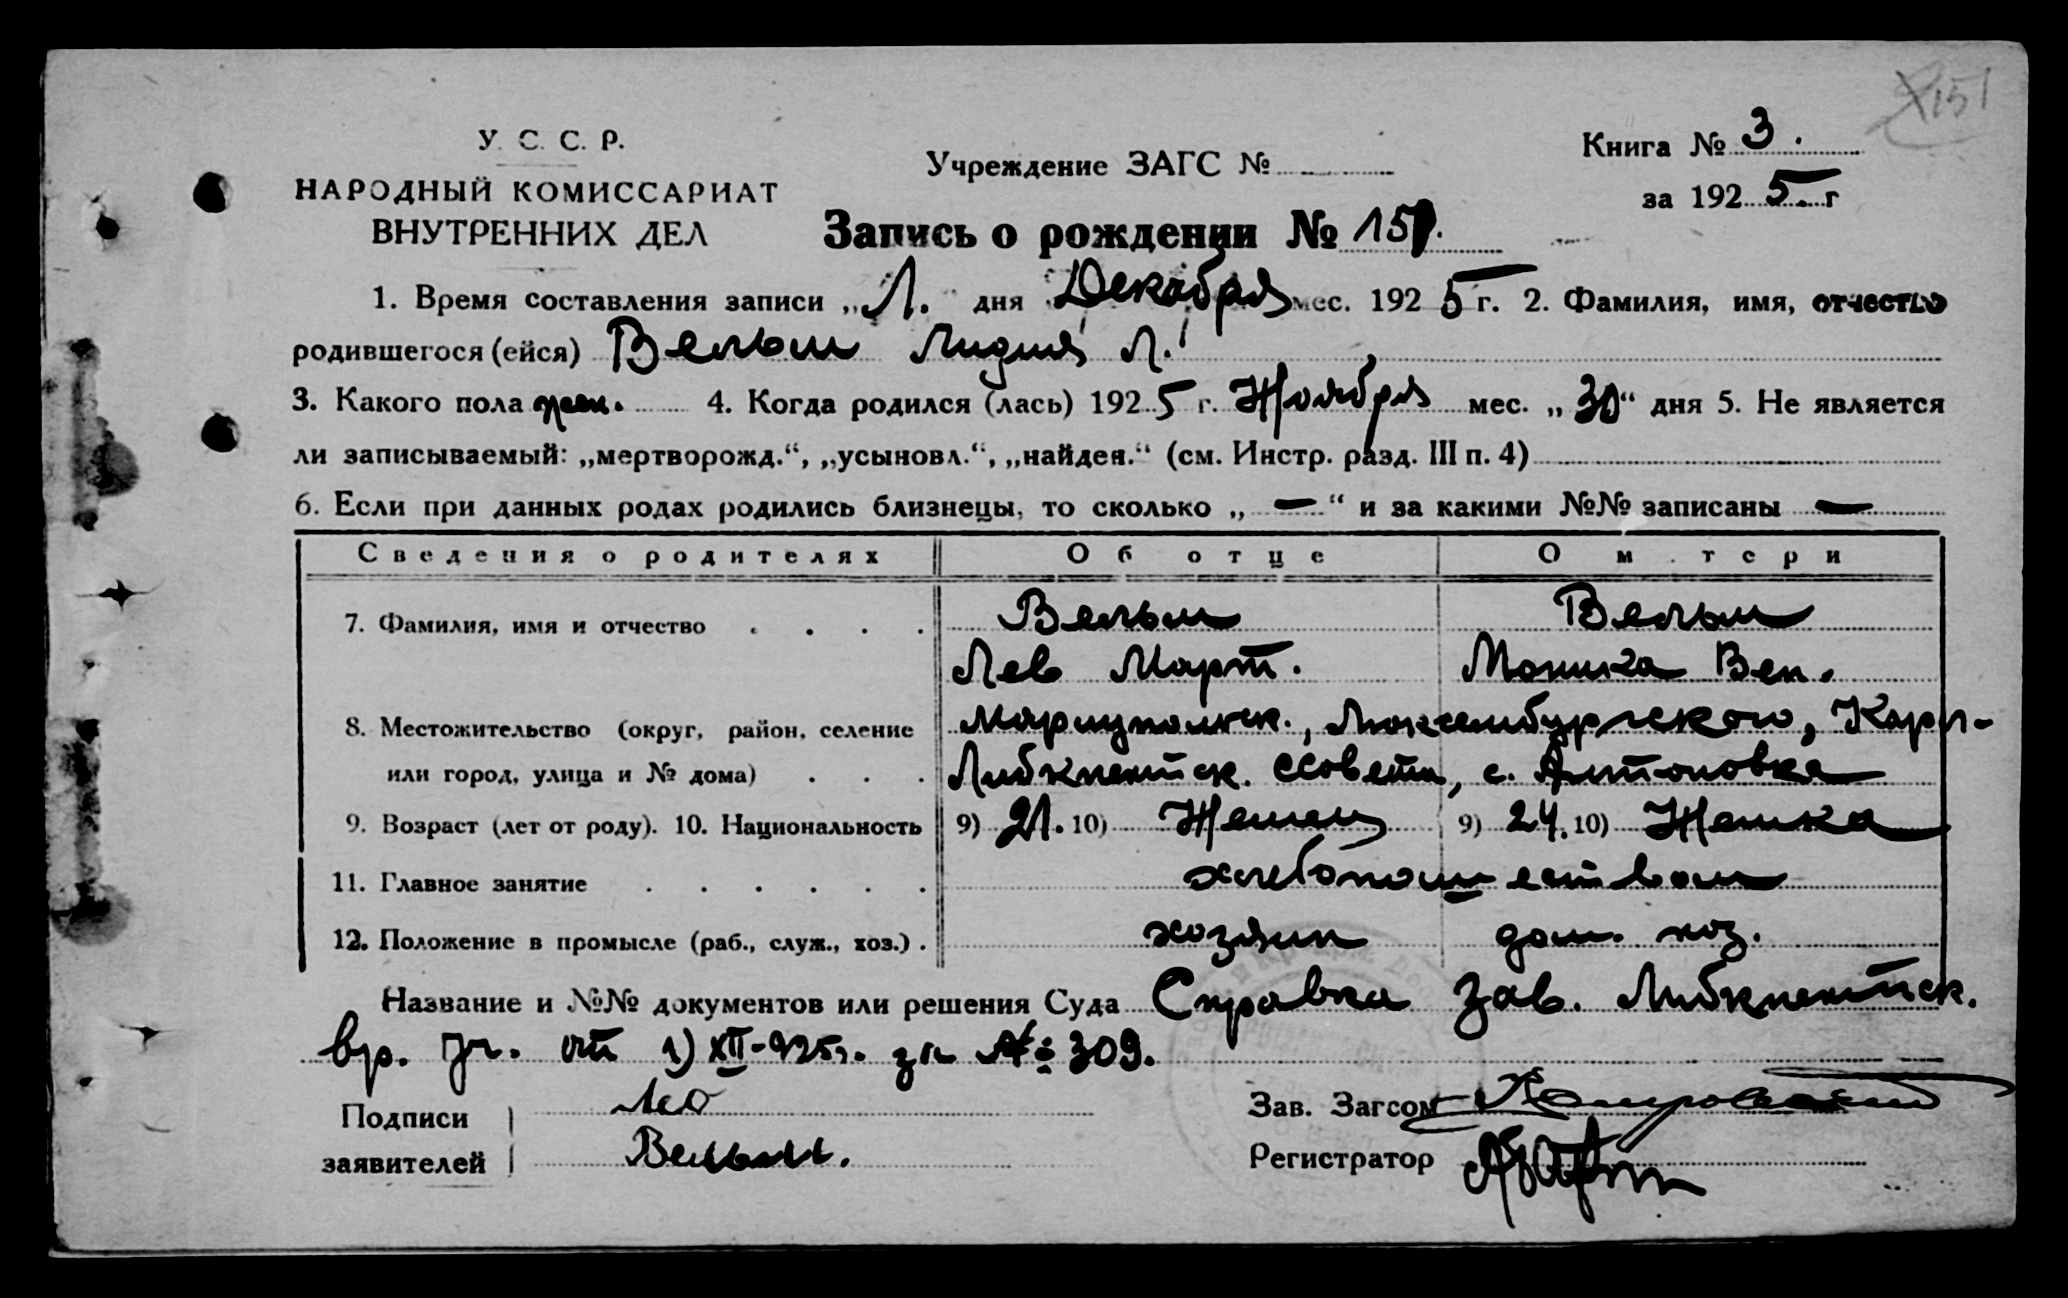 151
У. С. С. Р.
НАРОДНЫЙ КОМИССАРИАТ
ВНУТРЕННИХ ДЕЛ
Учреждение ЗАГС №
Книга № 3.
за 1925 г
Запись о рождении № 151.
1. Время составления записи „1." дня Декабря мес. 1925 г. 2. Фамилия, имя, отчество
родившегося (ейся) Вельш Лидия Л.
3. Какого пола жен. 4. Когда родился (лась) 1925 г. Ноября мес. „30" дня 5. Не является
ли записываемый: „мертворожд.", „усыновл.", „найден." (см. Инстр. разд. III п. 4)
6. Если при данных родах родились близнецы, то сколько „—" и за какими №№ записаны —
Сведения о родителях Об отце О м тери
7. Фамилия, имя и отчество Вельш Вельш
Лев Март. Моника Вен.
8. Местожительство (округ, район, селение Мариупольск., Люксембургского, Карл-
или город, улица и № дома) Либкнехтск. ссовета, с. Антоновка
9. Возраст (лет от роду). 10. Национальность 9) 21. 10) Немец 9) 24. 10) Немка
11. Главное занятие хлебопашеством
12. Положение в промысле (раб., служ., хоз.) хозяин дом. хоз.
Название и №№ документов или решения Суда Справка Зав. Либкнехтск.
вр. уч. от 1) XII-925г. за №: 309.
Подписи Лео
заявителей Вельш.
Зав. Загсом
Регистратор